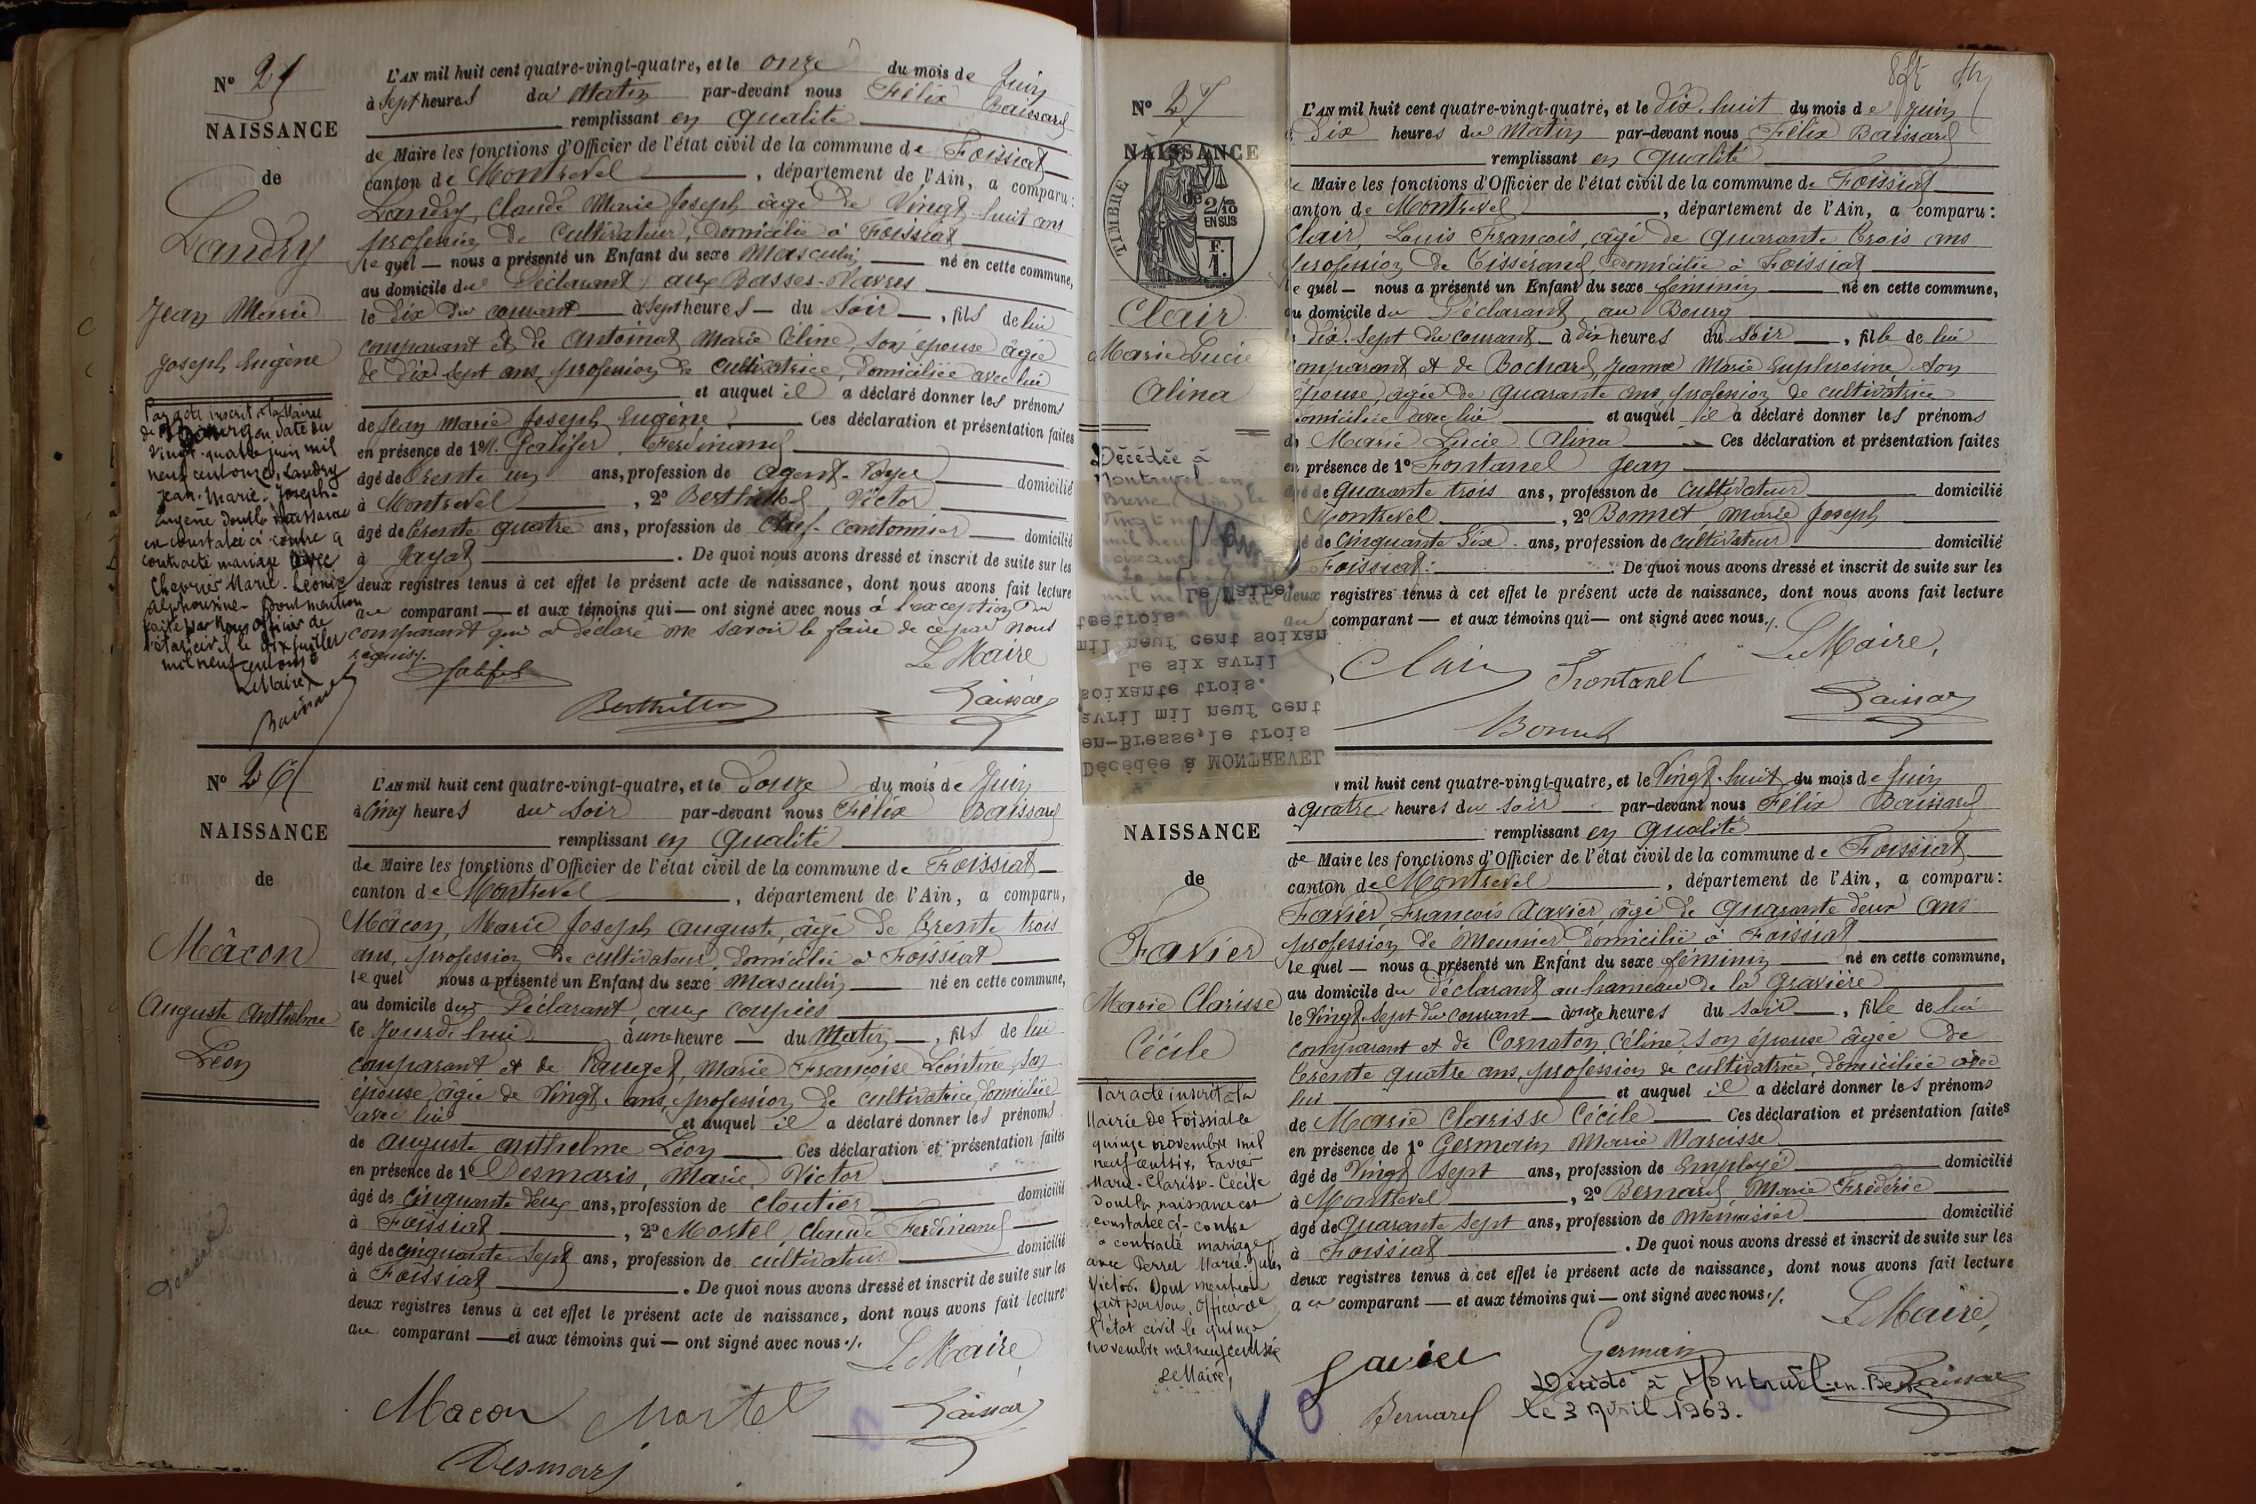 N° 25
NAISSANCE
de
Landry
Jean Marie
Joseph Eugène
Par acte inscrit à la Mairie
de date du
Vingt-quatre juin mil
neuf cent onze, Landry
Jean-Marie-Joseph-
Eugène dont la naissance
est constatée ci-contre a
contracté mariage avec
Chevrier Marie-Léonie
Alphonsine. Dont mention
faite par Nous Officier de
l'état civil le dix juillet
mil neuf cent onze
Le Maire
Baissard
L'AN mil huit cent quatre-vingt-quatre, et le onze du mois de Juin
à sept heures du Matin par-devant nous Félix Baissard
remplissant en qualité
de Maire les fonctions d'Officier de l'état civil de la commune de Foissiat
canton de Montrevel, département de l'Ain, a comparu:
Landry, Claude Marie Joseph âgé de Vingt-huit ans
profession de Cultivateur, domicilié à Foissiat
lequel — nous a présenté un Enfant du sexe Masculin né en cette commune,
au domicile du Déclarant, aux Basses-Navres
le dix du courant à sept heures — du Soir, fils de lui
comparant et de Antoinat Marie Céline, son épouse âgée
de dix sept ans, profession de cultivatrice, domiciliée avec lui
et auquel il a déclaré donner les prénoms
de Jean Marie Joseph Eugène Ces déclaration et présentation faites
en présence de 1° M. Galifer, Ferdinand
âgé de trente un ans, profession de agent-voyer domicilié
à Montrevel, 2° Berthillod, Victor
âgé de trente quatre ans, profession de chef-cantonnier domicilié
à Jayat. De quoi nous avons dressé et inscrit de suite sur les
deux registres tenus à cet effet le présent acte de naissance, dont nous avons fait lecture
au comparant — et aux témoins qui — ont signé avec nous à l'exception du
comparant qui a déclaré ne savoir le faire de ce par nous
requis./.
Le Maire
Galifer
Berthillod
Baissard
N° 26
NAISSANCE
de
Mâcon
Auguste Anthelme
Léon
L'AN mil huit cent quatre-vingt-quatre, et le Douze du mois de Juin
à cinq heures du soir par-devant nous Félix Baissard
remplissant en qualité
de Maire les fonctions d'Officier de l'état civil de la commune de Foissiat
canton de Montrevel, département de l'Ain, a comparu,
Mâcon, Marie Joseph Auguste, âgé de trente trois
ans, profession de cultivateur, domicilié à Foissiat
lequel nous a présenté un Enfant du sexe Masculin né en cette commune,
au domicile du Déclarant, aux
le Jourd'hui à une heure — du Matin, fils de lui
comparant et de Pauget, Marie Françoise Léontine, son
épouse, âgée de Vingt ans, profession de cultivatrice, domiciliée
avec lui et auquel il a déclaré donner les prénoms
de Auguste Anthelme Léon Ces déclaration et présentation faites
en présence de 1° Desmaris, Marie Victor
âgé de cinquante deux ans, profession de cloutier domicilié
à Foissiat, 2° Mortel, Claude Ferdinand
âgé de cinquante sept ans, profession de cultivateur domicilié
à Foissiat. De quoi nous avons dressé et inscrit de suite sur les
deux registres tenus à cet effet le présent acte de naissance, dont nous avons fait lecture
au comparant — et aux témoins qui — ont signé avec nous ./.
Le Maire,
Macon Mortel
Baissard
Desmaris
N° 27
NAISSANCE
de
TIMBRE
2/10
EN SUS
F.
1.
Clair
Marie Lucie
Alina
Décédée à
Montrevel-en
Bresse (Ain) le
Vingt
Le Maire,
Décédée à MONTREVEL
en-Bresse, le trois
avril mil neuf cent
soixante trois.
Le six avril
mil neuf cent soixan
tetrois
L'AN mil huit cent quatre-vingt-quatre, et le dix-huit du mois de Juin
à Dix heures du Matin par-devant nous Félix Baissard
remplissant en qualité
de Maire les fonctions d'Officier de l'état civil de la commune de Foissiat
canton de Montrevel, département de l'Ain, a comparu:
Clair, Louis François, âgé de quarante trois ans
profession de Tisserand, domicilié à Foissiat
lequel — nous a présenté un Enfant du sexe féminin né en cette commune,
au domicile du Déclarant, au Bourg
le dix-sept du courant à dix heures du soir, fille de lui
comparant et de Bochard, Jeanne Marie Euphrosine son
épouse, âgée de quarante ans, profession de cultivatrice
domiciliée avec lui et auquel il a déclaré donner les prénoms
de Marie Lucie Alina Ces déclaration et présentation faites
en présence de 1° Fontanel Jean
âgé de quarante trois ans, profession de cultivateur domicilié
Montrevel, 2° Bonnet Marie Joseph
âgé de cinquante six ans, profession de cultivateur domicilié
Foissiat. De quoi nous avons dressé et inscrit de suite sur les
deux registres tenus à cet effet le présent acte de naissance, dont nous avons fait lecture
au comparant — et aux témoins qui — ont signé avec nous./.
Le Maire,
Clair Frontanel
Baissard
Bonnet
NAISSANCE
de
Favier
Marie Clarisse
Cécile
Par acte inscrit à la
Mairie de Foissiat le
quinze novembre mil
neuf cent six, Favier
Marie-Clarisse-Cécile
dont la naissance est
constatée ci-contre
a contracté mariage
avec Perret Marie-Jules
Victor. Dont mention
fait par Nous, Officier de
l'état civil le quinze
novembre mil neuf cent six
Le Maire,
mil huit cent quatre-vingt-quatre, et le Vingt-huit du mois de Juin
à quatre heures du soir par-devant nous Félix Baissard
remplissant en qualité
de Maire les fonctions d'Officier de l'état civil de la commune de Foissiat
canton de Montrevel, département de l'Ain, a comparu:
Favier, François Xavier, âgé de quarante deux ans
profession de Meunier domicilié à Foissiat
lequel — nous a présenté un Enfant du sexe féminin né en cette commune,
au domicile du déclarant au hameau de la Gravière
le Vingt-sept du courant — à onze heures du soir, fille de lui
comparant et de Cornaton Céline, son épouse âgée de
trente quatre ans, profession de cultivatrice, domiciliée avec
lui et auquel il a déclaré donner les prénoms
de Marie Clarisse Cécile Ces déclaration et présentation faites
en présence de 1° Germain Marie Narcisse
âgé de Vingt sept ans, profession de Employé domicilié
à Montrevel, 2° Bernard Marie Frédéric
âgé de quarante sept ans, profession de menuisier domicilié
à Foissiat. De quoi nous avons dressé et inscrit de suite sur les
deux registres tenus à cet effet le présent acte de naissance, dont nous avons fait lecture
au comparant — et aux témoins qui — ont signé avec nous ./.
Le Maire,
Favier Germain
Baissard
Bernard
Décédé à Montrevel-en-Bresse
le 3 Avril 1963.